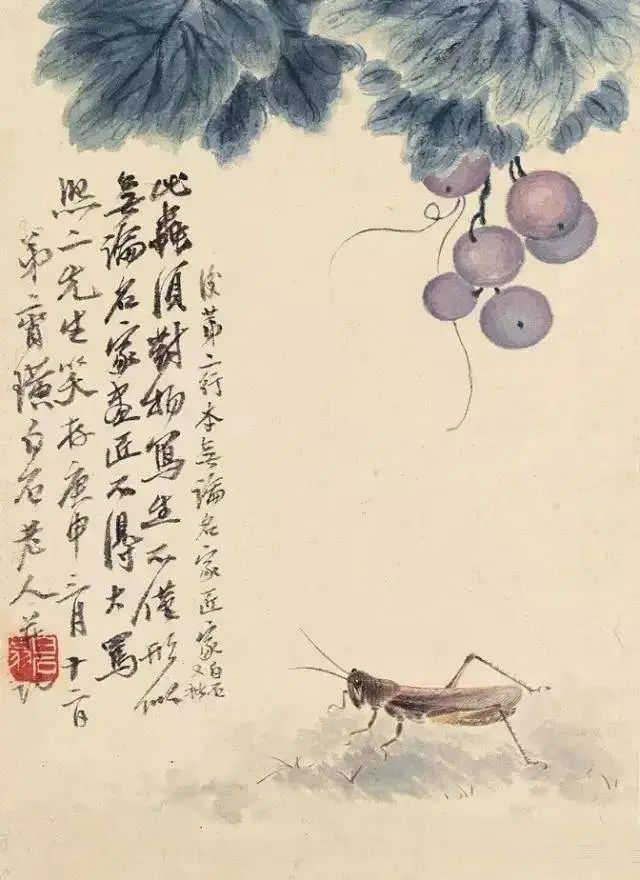 此蟲須對物寫生不僅形似
無論名家畫匠不得大罵
熙二先生笑存庚申三月十二日
弟齊璜白石老人并記
白石翁
後第二行本無論名家匠家
白石
又